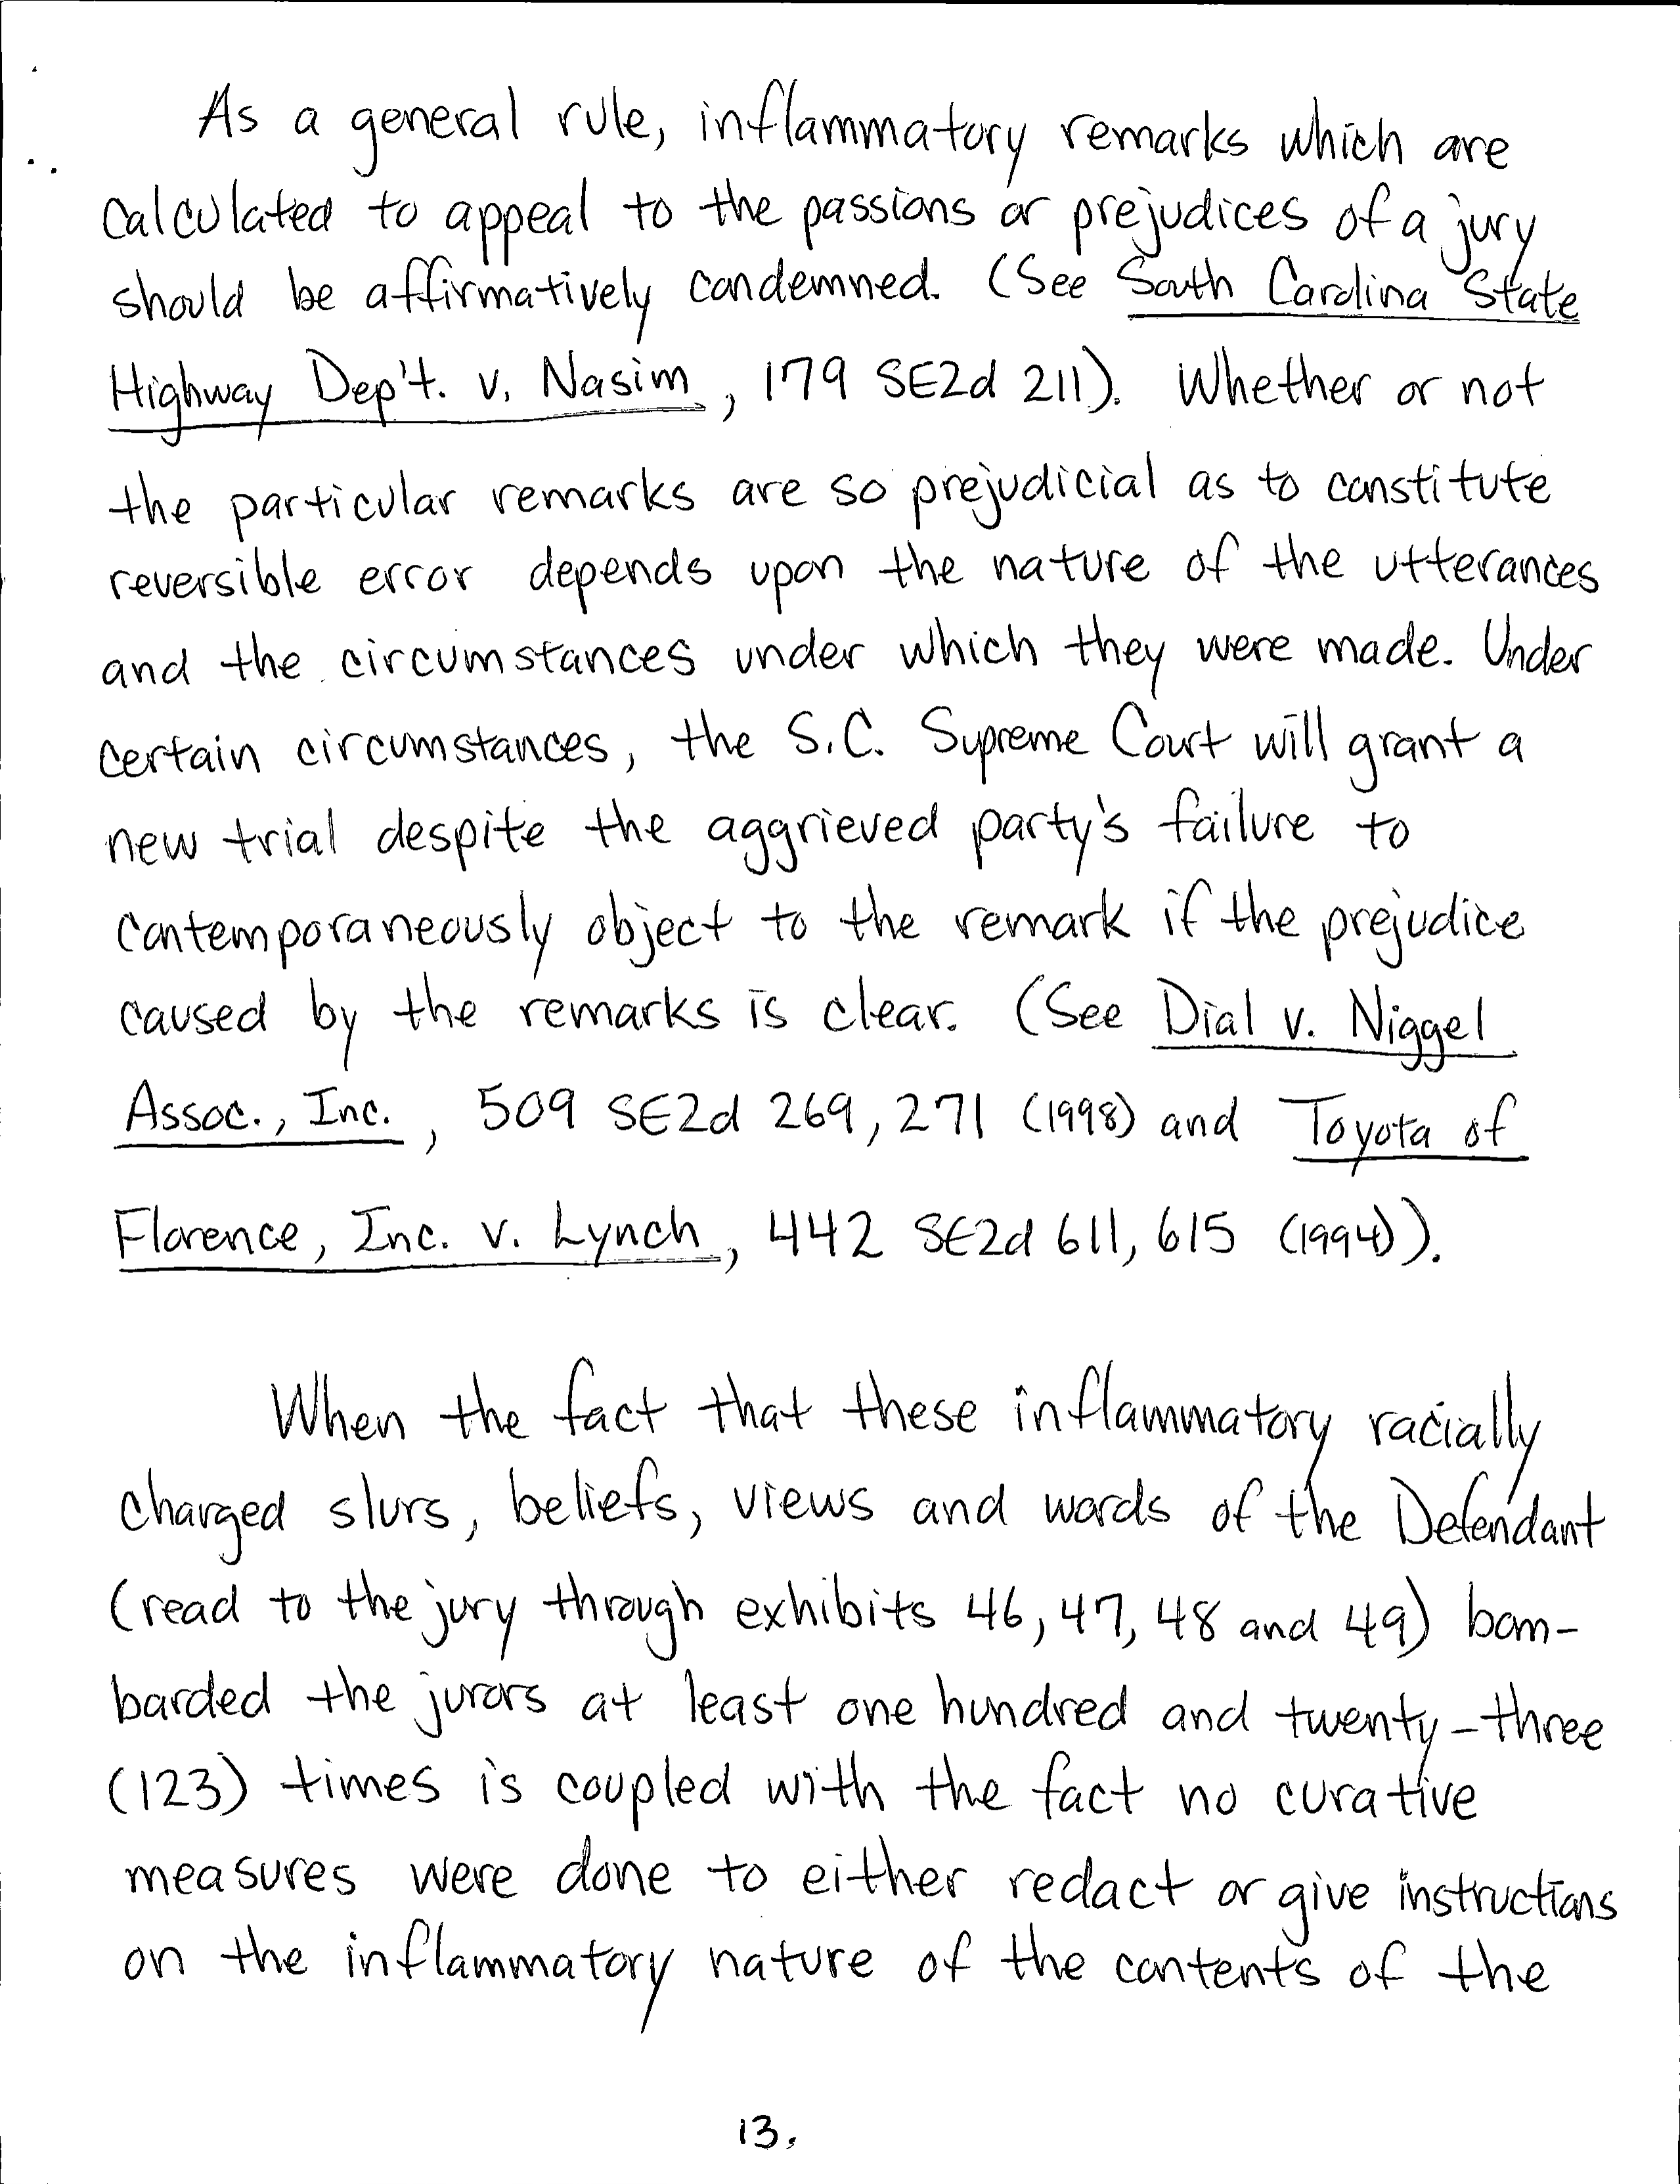 As a general rule, inflammatory remarks which are
calculated to appeal to the passions or prejudices of a jury
should be affirmatively condemned. (See South Carolina State
Highway Dep't. v. Nasim, 179 SE2d 211). Whether or not
the particular remarks are so prejudicial as to constitute
reversible error depends upon the nature of the utterances
and the circumstances under which they were made. Under
certain circumstances, the S.C. Supreme Court will grant a
new trial despite the aggrieved party's failure to
contemporaneously object to the remark if the prejudice
caused by the remarks is clear. (See Dial v. Niggel
Assoc., Inc., 509 SE2d 269, 271 (1998) and Toyota of
Florence, Inc. v. Lynch, 442 SE2d 611, 615 (1994)).
When the fact that these inflammatory racially
charged slurs, beliefs, views and words of the Defendant
(read to the jury through exhibits 46, 47, 48 and 49) bom-
barded the jurors at least one hundred and twenty-three
(123) times is coupled with the fact no curative
measures were done to either redact or give instructions
on the inflammatory nature of the contents of the
13.